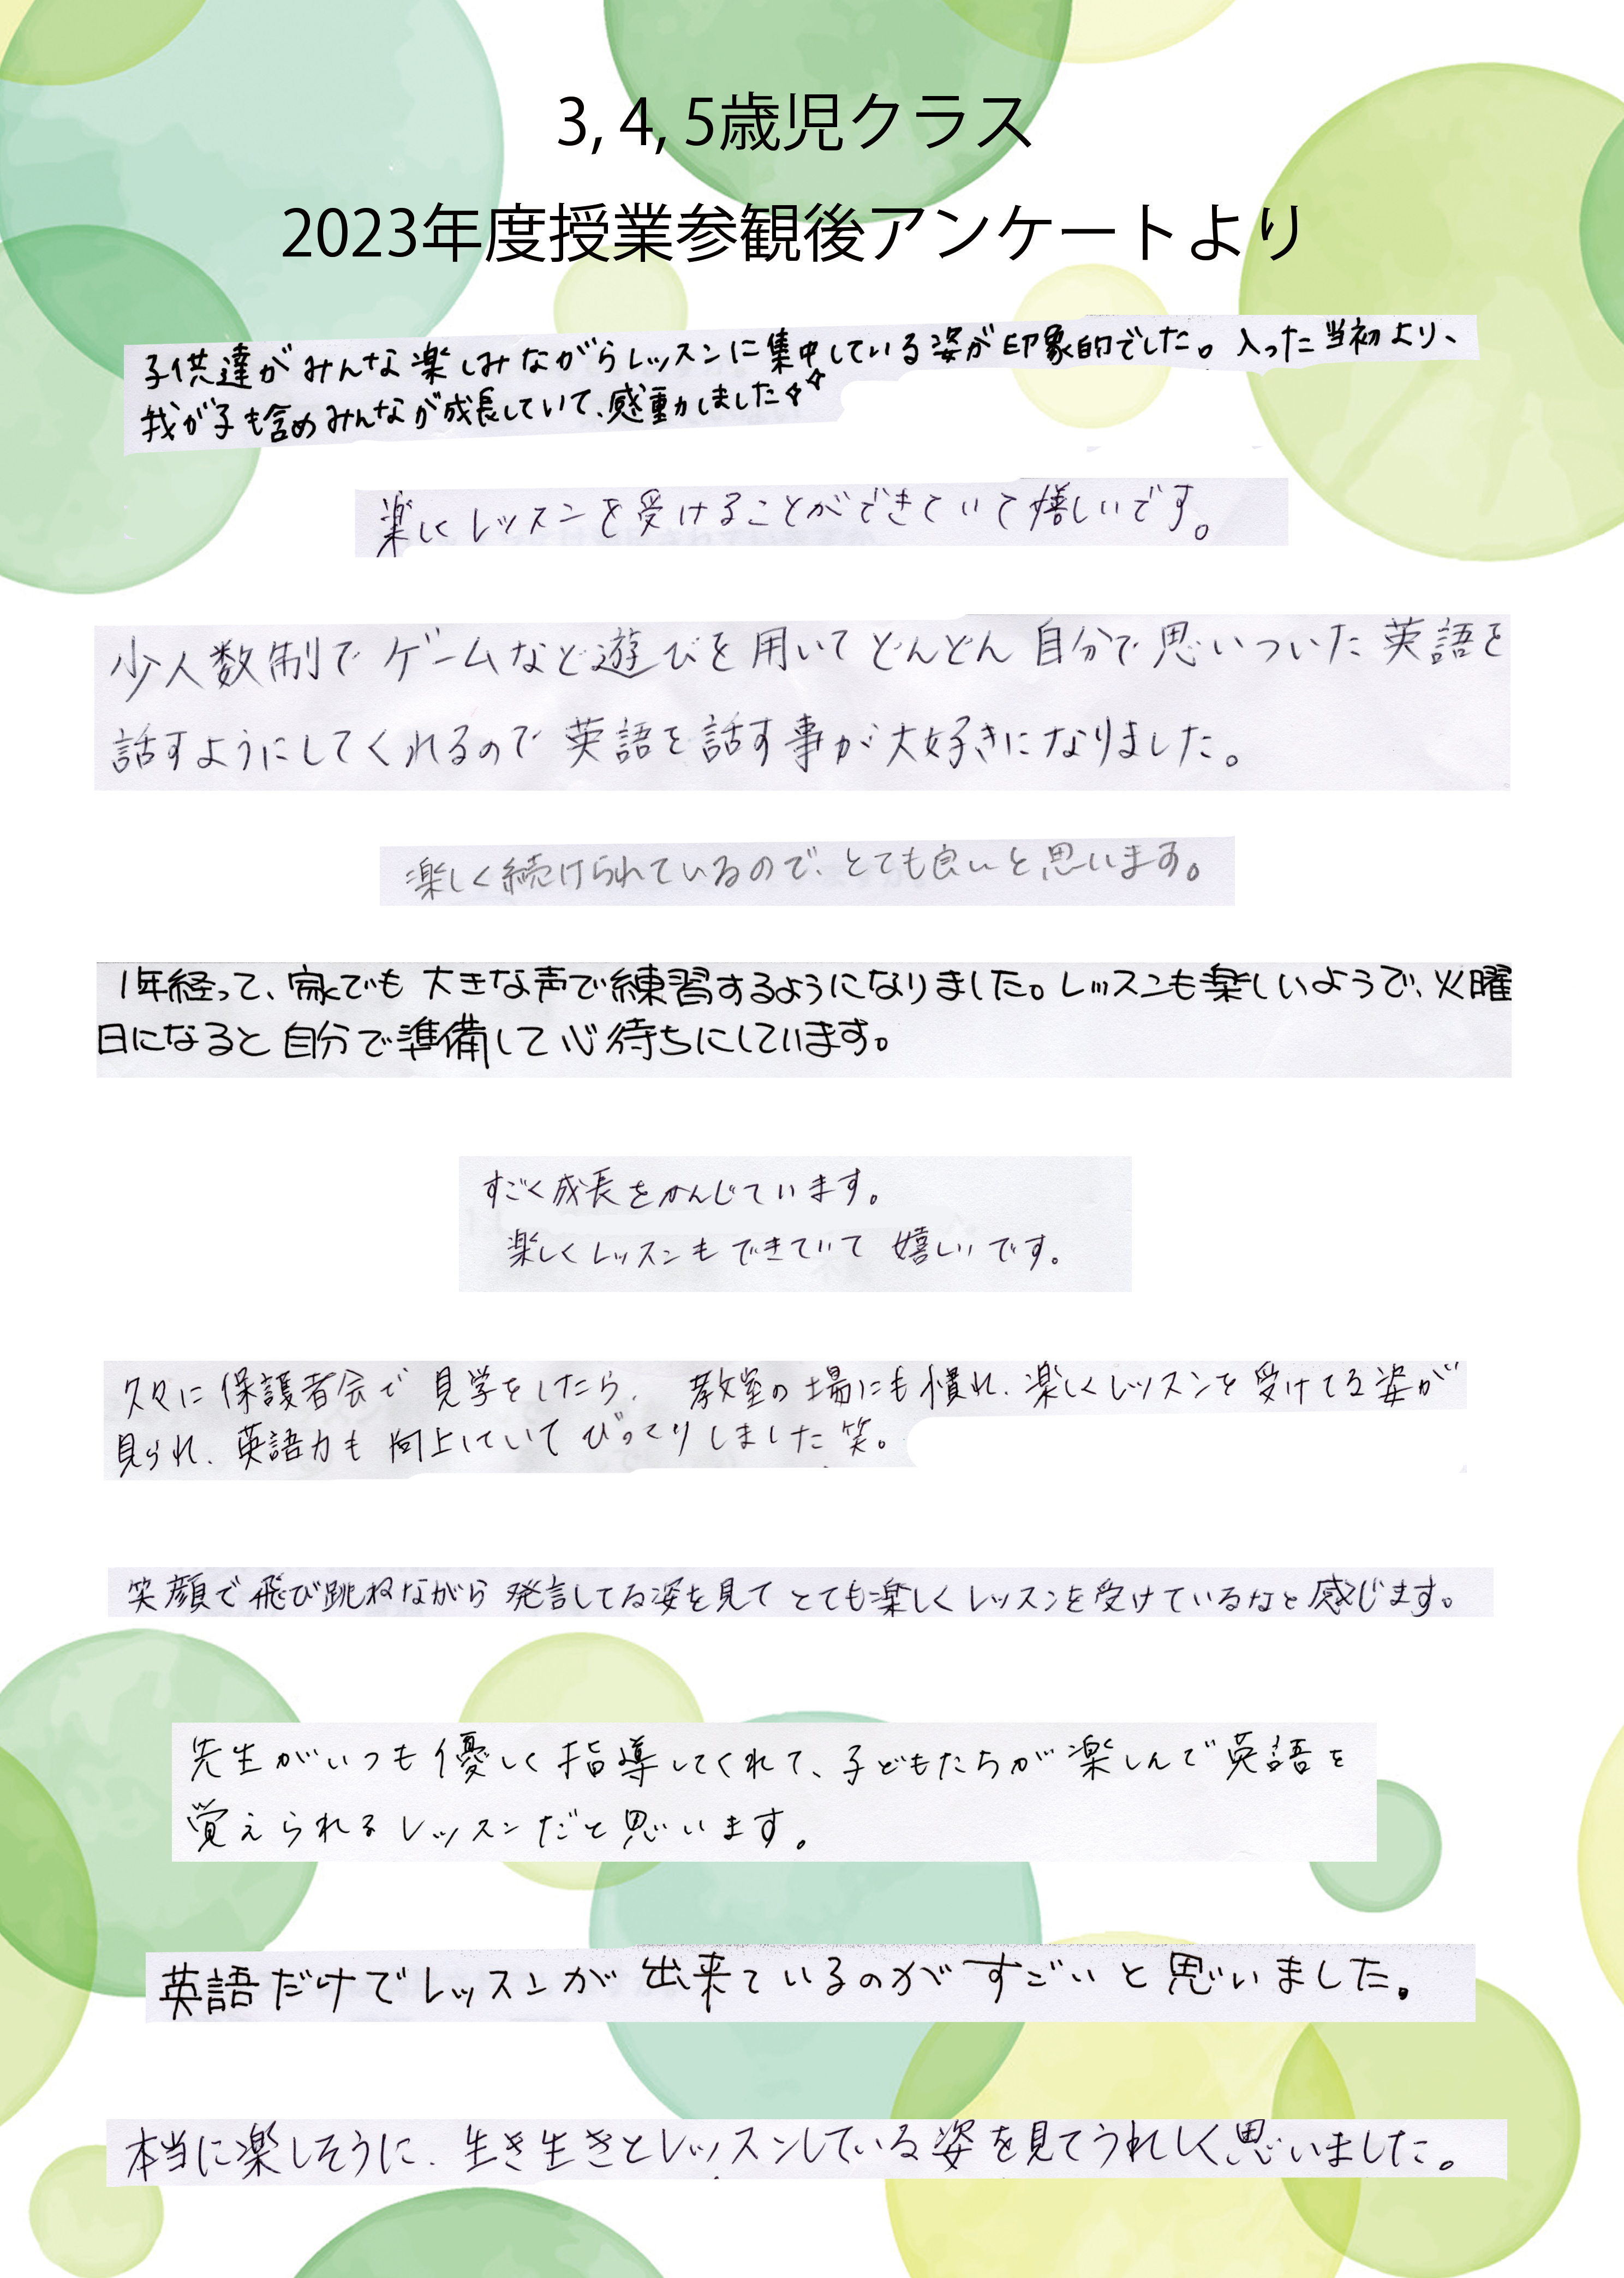 3, 4, 5歳児クラス
2023年度授業参観後アンケートより
子供達がみんな楽しみながらレッスンに集中している姿が印象的でした。入った当初より、
我が子も含めみんなが成長していて、感動しました✧✧
楽しくレッスンを受けることができていて嬉しいです。
少人数制でゲームなど遊びを用いてどんどん自分で思いついた英語を
話すようにしてくれるので英語を話す事が大好きになりました。
楽しく続けられているので、とても良いと思います。
1年経って、家でも大きな声で練習するようになりました。レッスンも楽しいようで、火曜
日になると自分で準備して心待ちにしています。
すごく成長をかんじています。
楽しくレッスンもできていて嬉しいです。
久々に保護者会で見学をしたら、教室の場にも慣れ、楽しくレッスンを受けてる姿が
見られ、英語力も向上していてびっくりしました笑。
笑顔で飛び跳ねながら発言してる姿を見てとても楽しくレッスンを受けているなと感じます。
先生がいつも優しく指導してくれて、子どもたちが楽しんで英語を
覚えられるレッスンだと思います。
英語だけでレッスンが出来ているのがすごいと思いました。
本当に楽しそうに、生き生きとレッスンしている姿を見てうれしく思いました。